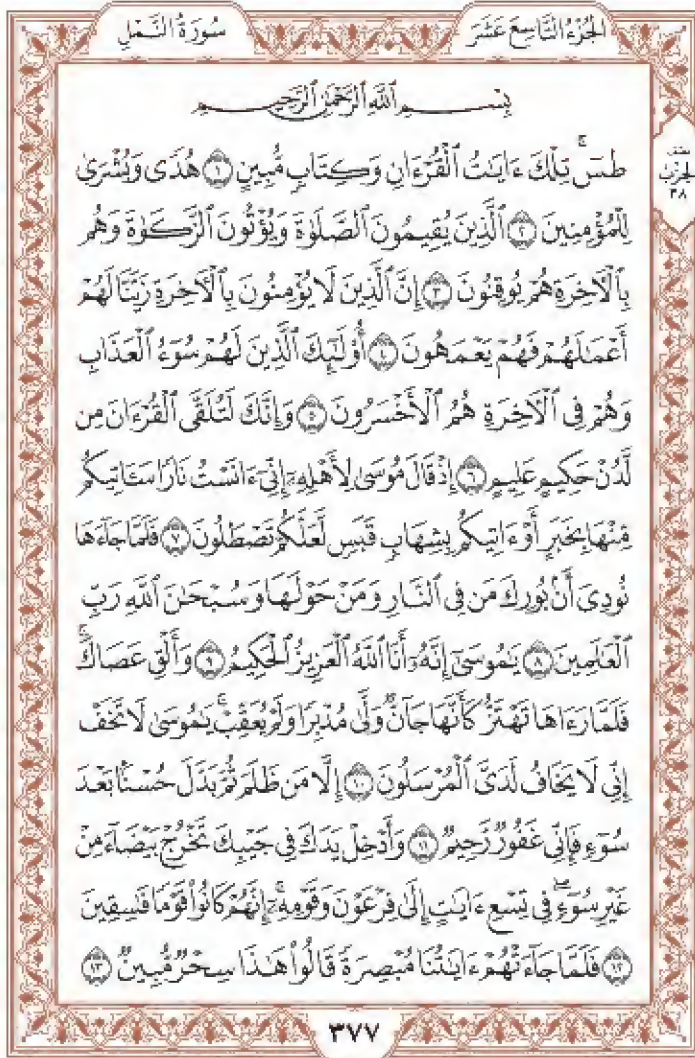 سُورَةُ النَّمْلِ
الجُزْءُ التَّاسِعَ عَشَرَ
بِسْمِ ٱللَّهِ ٱلرَّحْمَٰنِ ٱلرَّحِيمِ
طسٓۚ تِلْكَ ءَايَٰتُ ٱلْقُرْءَانِ وَكِتَابٍ مُّبِينٍ ١ هُدًى وَبُشْرَىٰ
لِلْمُؤْمِنِينَ ٢ ٱلَّذِينَ يُقِيمُونَ ٱلصَّلَوٰةَ وَيُؤْتُونَ ٱلزَّكَوٰةَ وَهُم
بِٱلْءَاخِرَةِ هُمْ يُوقِنُونَ ٣ إِنَّ ٱلَّذِينَ لَا يُؤْمِنُونَ بِٱلْءَاخِرَةِ زَيَّنَّا لَهُمْ
أَعْمَٰلَهُمْ فَهُمْ يَعْمَهُونَ ٤ أُو۟لَٰٓئِكَ ٱلَّذِينَ لَهُمْ سُوٓءُ ٱلْعَذَابِ
وَهُمْ فِى ٱلْءَاخِرَةِ هُمُ ٱلْأَخْسَرُونَ ٥ وَإِنَّكَ لَتُلَقَّى ٱلْقُرْءَانَ مِن
لَّدُنْ حَكِيمٍ عَلِيمٍ ٦ إِذْ قَالَ مُوسَىٰ لِأَهْلِهِۦٓ إِنِّىٓ ءَانَسْتُ نَارًا سَـَٔاتِيكُم
مِّنْهَا بِخَبَرٍ أَوْ ءَاتِيكُم بِشِهَابٍ قَبَسٍ لَّعَلَّكُمْ تَصْطَلُونَ ٧ فَلَمَّا جَآءَهَا
نُودِىَ أَنۢ بُورِكَ مَن فِى ٱلنَّارِ وَمَنْ حَوْلَهَا وَسُبْحَٰنَ ٱللَّهِ رَبِّ
ٱلْعَٰلَمِينَ ٨ يَٰمُوسَىٰٓ إِنَّهُۥٓ أَنَا ٱللَّهُ ٱلْعَزِيزُ ٱلْحَكِيمُ ٩ وَأَلْقِ عَصَاكَۚ
فَلَمَّا رَءَاهَا تَهْتَزُّ كَأَنَّهَا جَآنٌّ وَلَّىٰ مُدْبِرًا وَلَمْ يُعَقِّبْۚ يَٰمُوسَىٰ لَا تَخَفْ
إِنِّى لَا يَخَافُ لَدَىَّ ٱلْمُرْسَلُونَ ١٠ إِلَّا مَن ظَلَمَ ثُمَّ بَدَّلَ حُسْنًۢا بَعْدَ
سُوٓءٍ فَإِنِّى غَفُورٌ رَّحِيمٌ ١١ وَأَدْخِلْ يَدَكَ فِى جَيْبِكَ تَخْرُجْ بَيْضَآءَ مِنْ
غَيْرِ سُوٓءٍۖ فِى تِسْعِ ءَايَٰتٍ إِلَىٰ فِرْعَوْنَ وَقَوْمِهِۦٓۚ إِنَّهُمْ كَانُوا۟ قَوْمًا فَٰسِقِينَ
١٢ فَلَمَّا جَآءَتْهُمْ ءَايَٰتُنَا مُبْصِرَةً قَالُوا۟ هَٰذَا سِحْرٌ مُّبِينٌ ١٣
نصف
الحزب
٣٨
٣٧٧